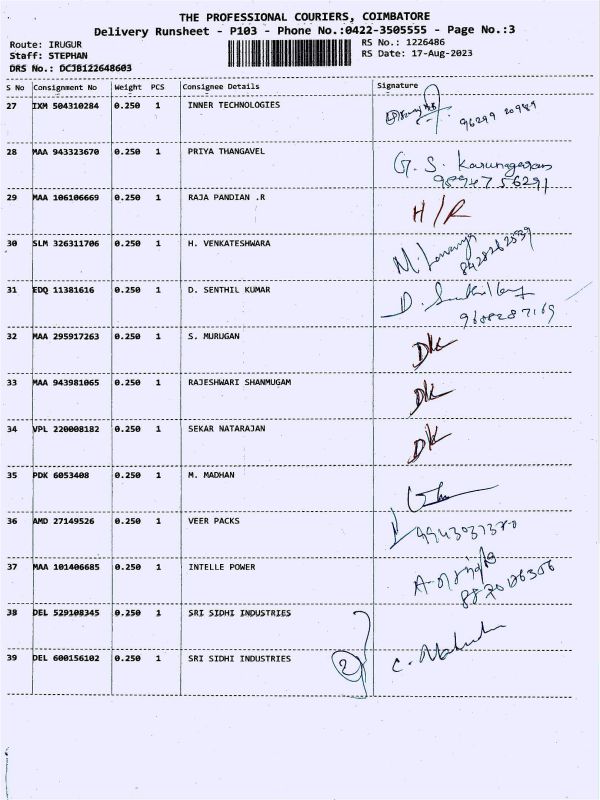 THE PROFESSIONAL COURIERS, COIMBATORE
Delivery Runsheet - P103 - Phone No.:0422-3505555 - Page No.:3
Route: IRUGUR
Staff: STEPHAN
DRS No.: DCJB122648603
RS No.: 1226486
RS Date: 17-Aug-2023
S No Consignment No Weight PCS Consignee Details Signature
27 IXM 504310284 0.250 1 INNER TECHNOLOGIES
28 MAA 943323670 0.250 1 PRIYA THANGAVEL G. S. Karunagaran
9894756291
29 MAA 106106669 0.250 1 RAJA PANDIAN .R H/R
30 SLM 326311706 0.250 1 H. VENKATESHWARA
31 EDQ 11381616 0.250 1 D. SENTHIL KUMAR D.
32 MAA 295917263 0.250 1 S. MURUGAN DK
33 MAA 943981065 0.250 1 RAJESHWARI SHANMUGAM DK
34 VPL 220008182 0.250 1 SEKAR NATARAJAN DK
35 PDK 6053408 0.250 1 M. MADHAN
36 AMD 27149526 0.250 1 VEER PACKS
37 MAA 101406685 0.250 1 INTELLE POWER
38 DEL 529108345 0.250 1 SRI SIDHI INDUSTRIES
39 DEL 600156102 0.250 1 SRI SIDHI INDUSTRIES 2